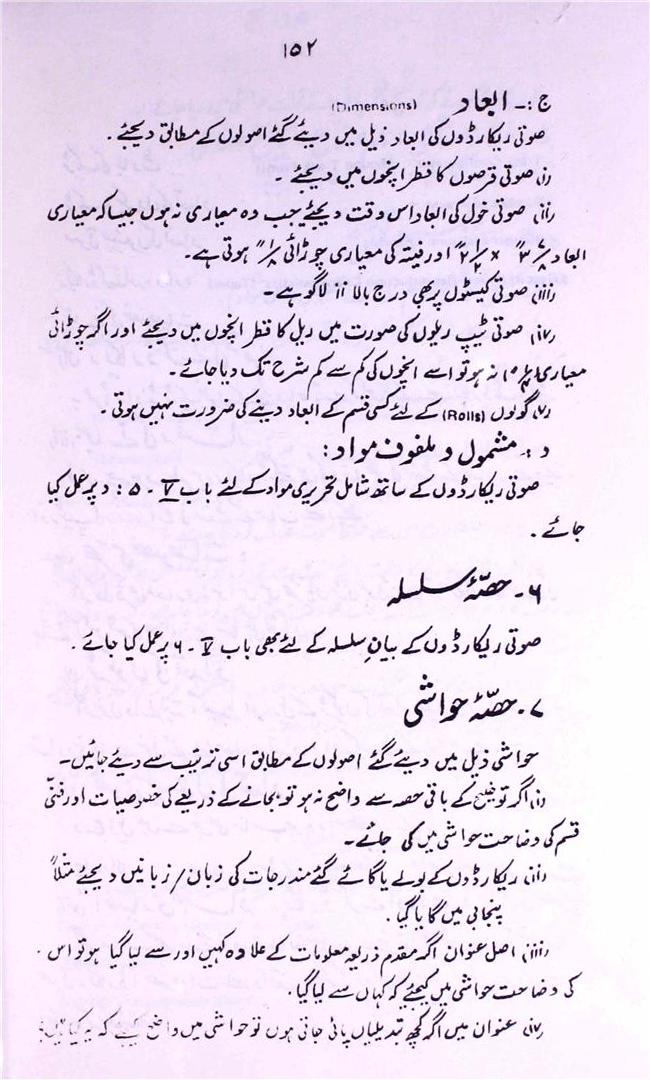 ۱۵۲
ج :۔ ابعاد (Dimensions)
صوتی ریکارڈوں کی ابعاد ذیل میں دیئے گئے اصولوں کے مطابق دیجئے۔
(i) صوتی قرصوں کا قطر انچوں میں دیجئے ۔
(ii) صوتی خول کی ابعاد اس وقت دیجئے جب وہ معیاری نہ ہوں جیسا کہ معیاری
ابعاد ۳ ۷/۸″ × ۲ ۱/۲″ اور فیتہ کی معیاری چوڑائی ۱/۸″ ہوتی ہے۔
(iii) صوتی کیسٹوں پر بھی درج بالا ii لاگو ہے۔
(iv) صوتی ٹیپ ریلوں کی صورت میں ریل کا قطر انچوں میں دیجئے اور اگر چوڑائی
معیاری نہ ہو تو اسے انچوں کی کم سے کم شرح تک دیا جائے۔
(v) گولوں (Rolls) کے لئے کسی قسم کے ابعاد دینے کی ضرورت نہیں ہوتی۔
د :۔ مشمول و ملفوف مواد :
صوتی ریکارڈوں کے ساتھ شامل تحریری مواد کے لئے باب V ۔ ۵ : د پر عمل کیا
جائے ۔
۶۔ حصّۂ سلسلہ
صوتی ریکارڈوں کے بیانِ سلسلہ کے لئے بھی باب V ۔ ۶ پر عمل کیا جائے ۔
۷۔ حصّۂ حواشی
حواشی ذیل میں دیئے گئے اصولوں کے مطابق اسی ترتیب سے دیئے جائیں۔
(i) اگر توضیح کے باقی حصہ سے واضح نہ ہو تو بجانے کے ذریعے کی خصوصیات اور فنّی
قسم کی وضاحت حواشی میں کی جائے۔
(ii) ریکارڈوں کے بولے یا گائے گئے مندرجات کی زبان/زبانیں دیجئے مثلاً
پنجابی میں گایا گیا ۔
(iii) اصل عنوان اگر مقدم ذریعہ معلومات کے علاوہ کہیں اور سے لیا گیا ہو تو اس
کی وضاحت حواشی میں کیجئے کہ کہاں سے لیا گیا۔
(iv) عنوان میں اگر کچھ تبدیلیاں پائی جاتی ہوں تو حواشی میں واضح کیجئے کہ یہ کیا